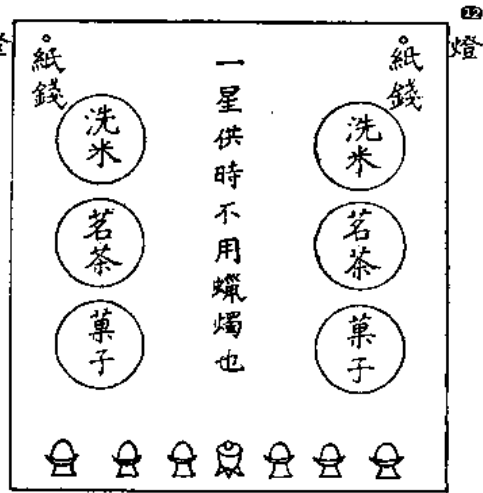 12
燈
紙錢
洗米
茗茶
菓子
一星供時不用蠟燭也
紙錢
洗米
茗茶
菓子
燈